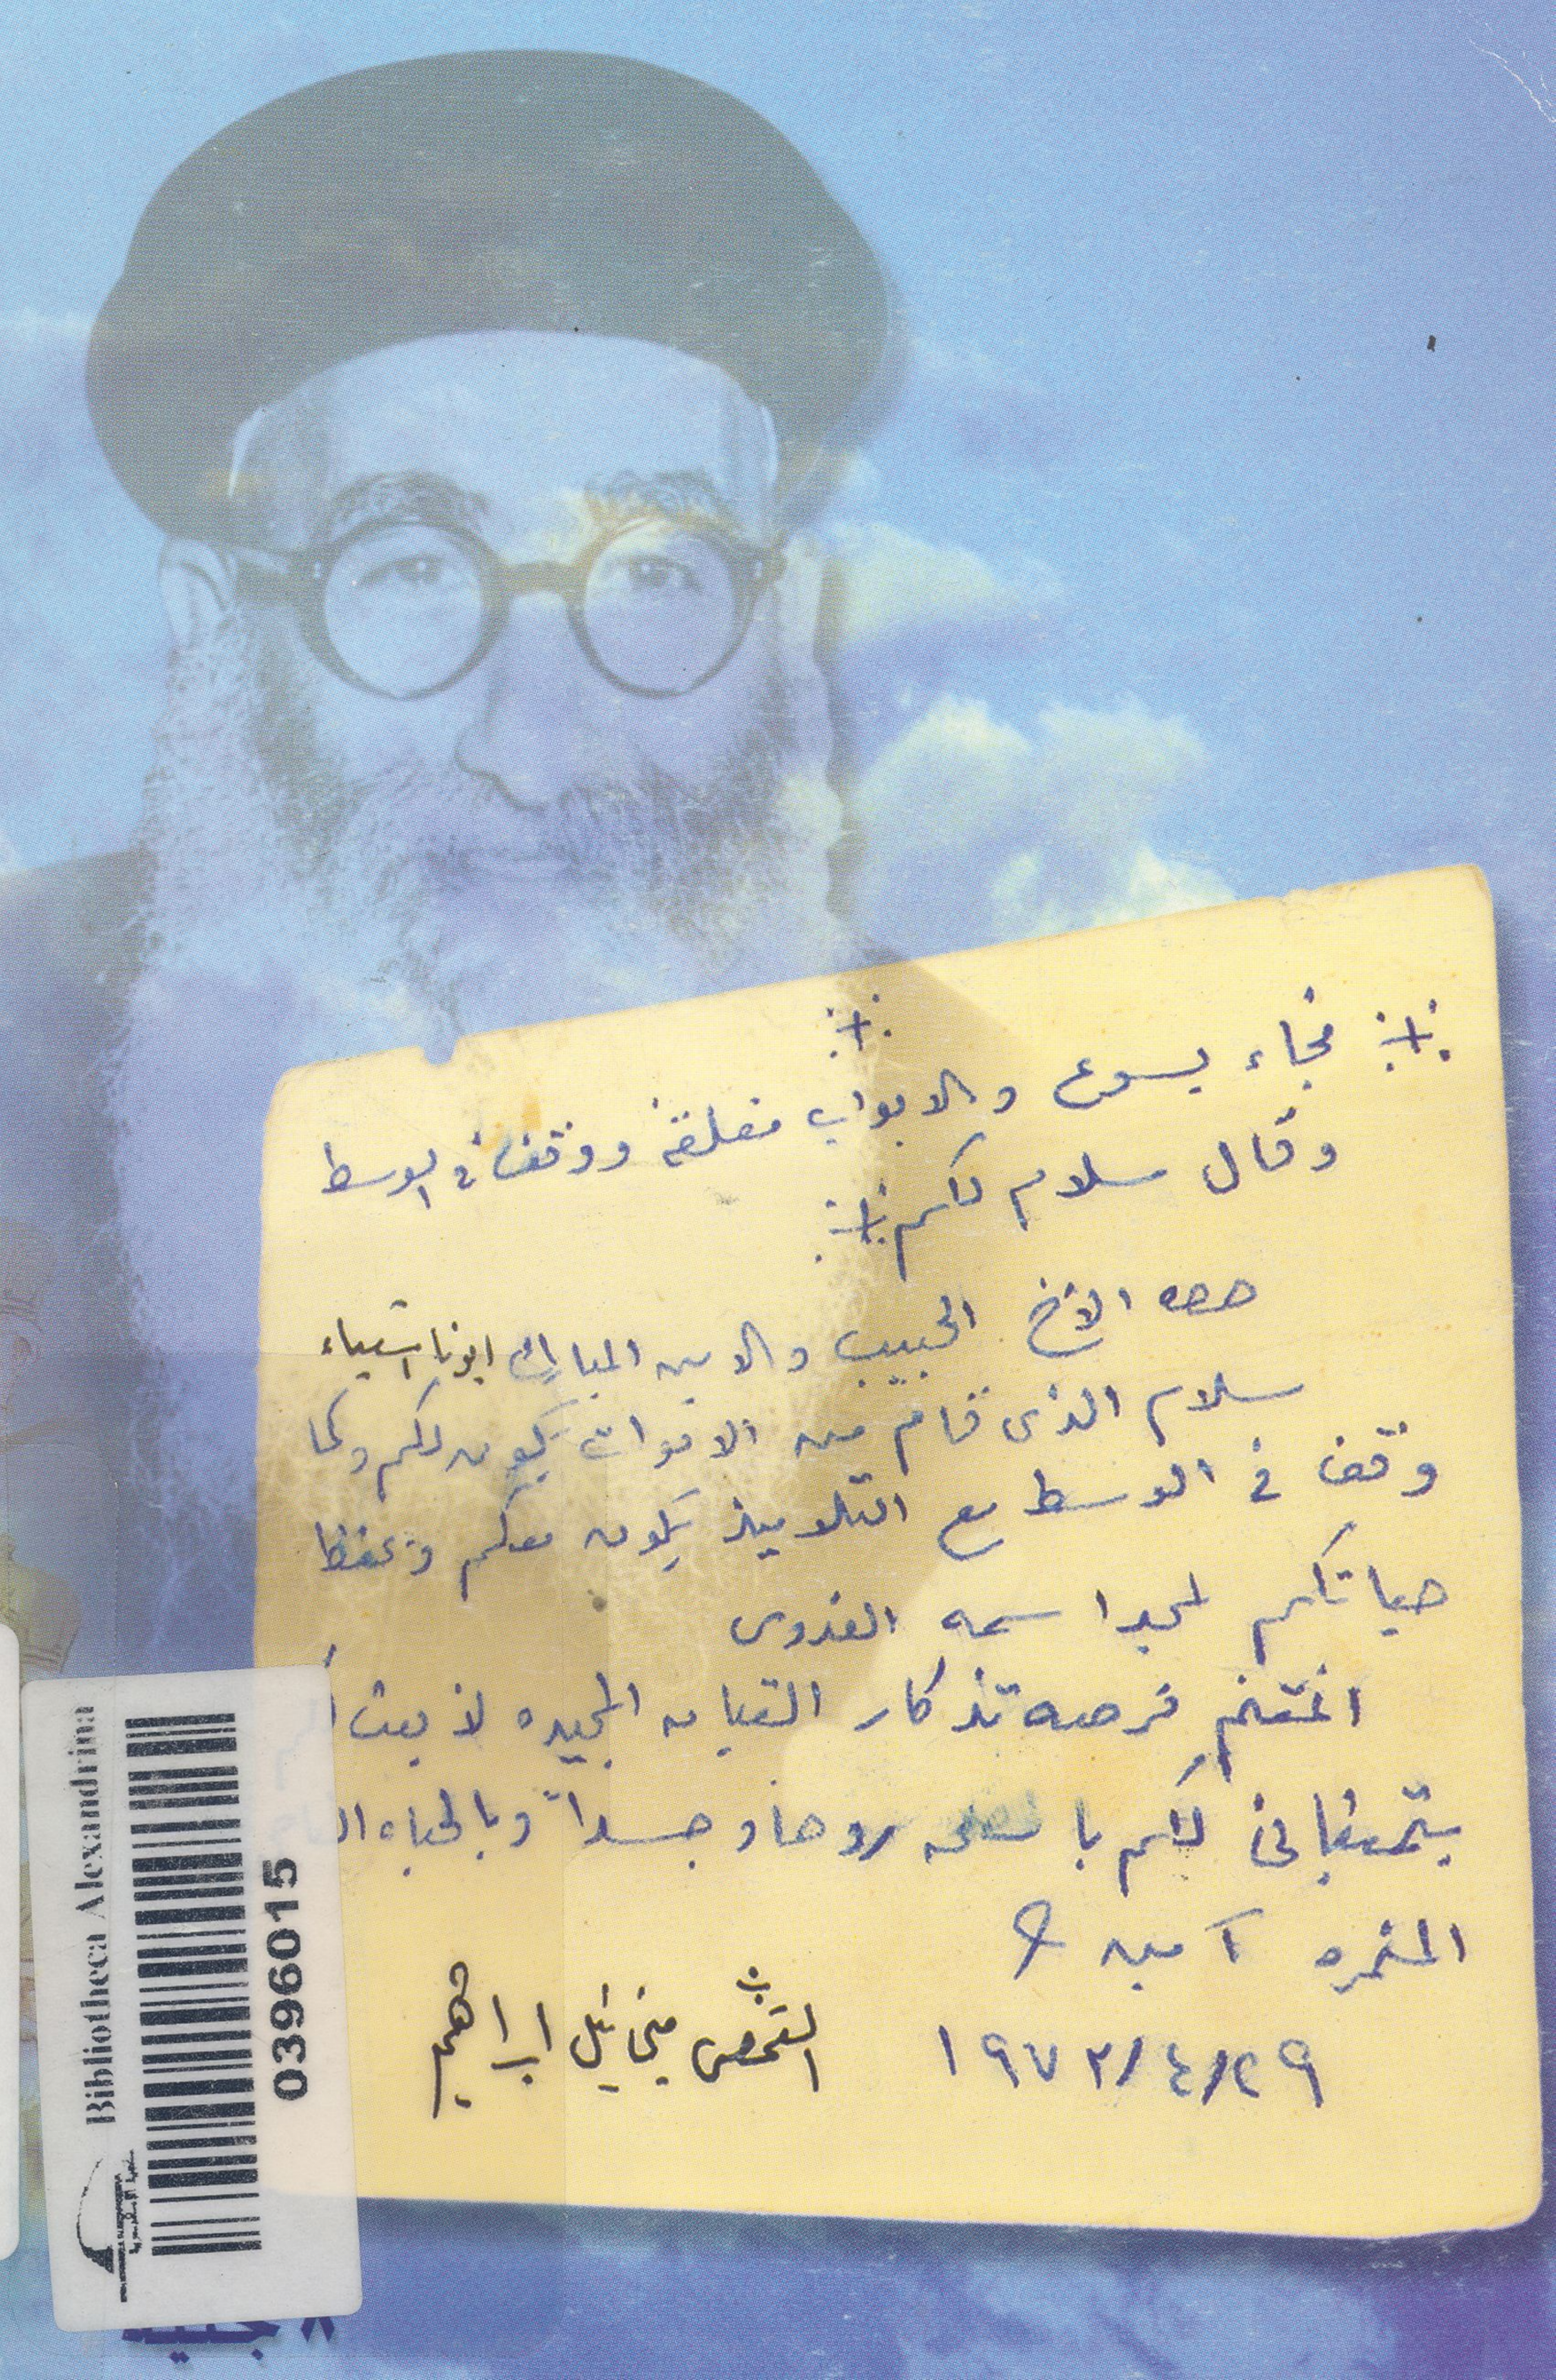 فجاء يسوع والابواب مغلقة ووقف فى الوسط
وقال سلام لكم
الاخ الحبيب والابن المبارك ابونا اشعياء
سلام الذى قام من الاموات يكون لكم وكما
وقف فى الوسط مع التلاميذ يكون معكم ويحفظ
حياتكم لمجد اسمه القدوس
اغتنم فرصه تذكار القيامه المجيده لأبعث
بتمنياتى لكم بالصحه روحا وجسداً وبالحياه
المثمره آمين
٢٩/٤/١٩٧٢
القمص ميخائيل ابراهيم
Bibliotheca Alexandrina
0396015
٨ جنيه